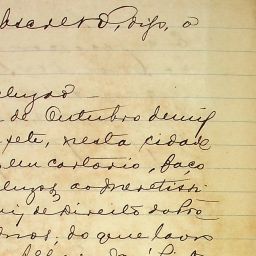 escrevo, digo, o
clusão
de Outubro de mil
sete, nesta cidade
em cartorio, faço
clusos ao Meretissi
uiz de Direito do Pro
do que lavro